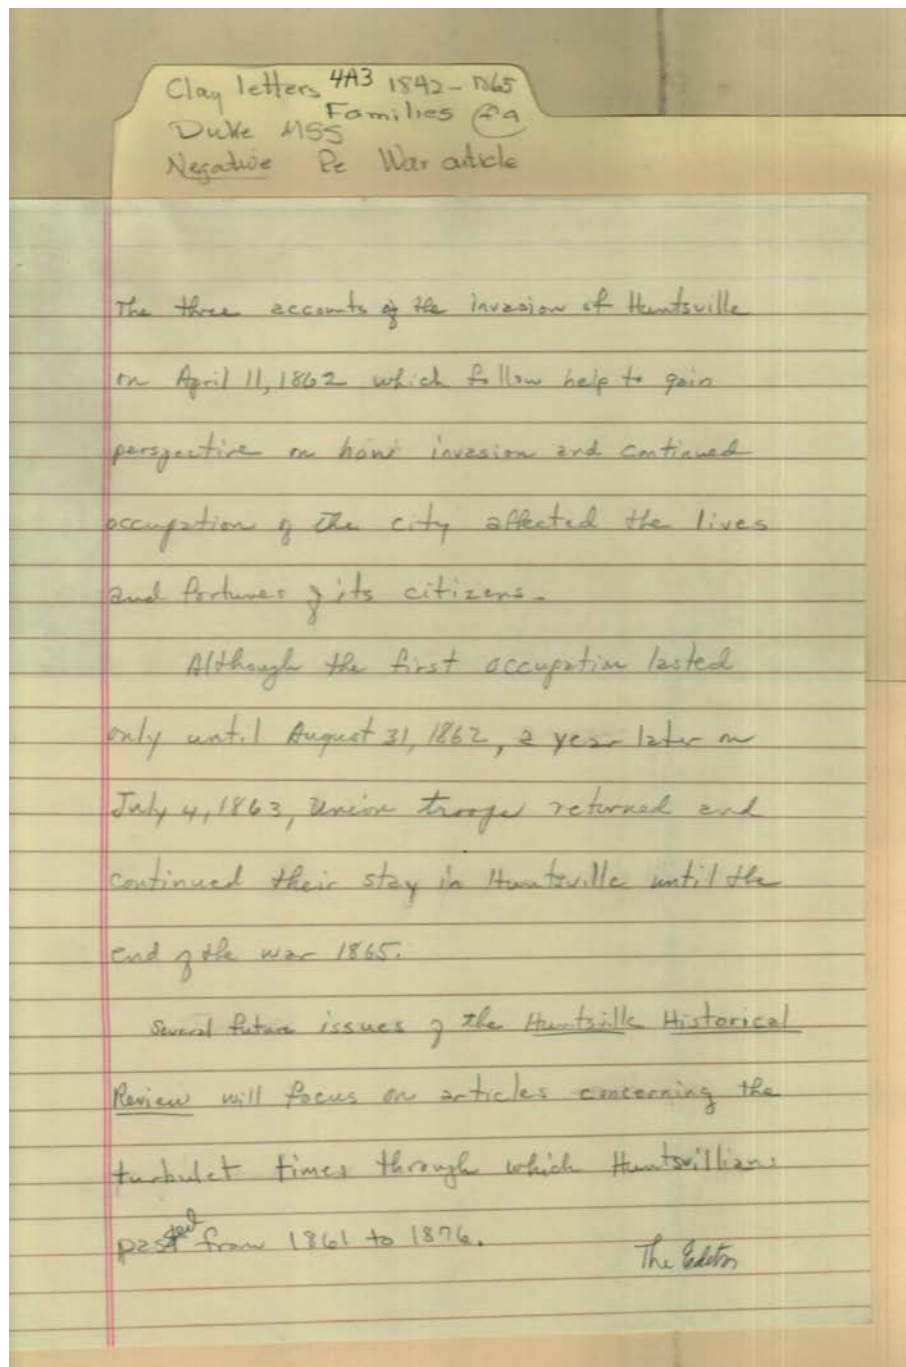 Clay letters 4A3 1842-1865
Families
Duke MSS
Negative Re War article
The three accounts of the invasion of Huntsville
on April 11, 1862 which follow help to gain
perspective on how invasion and continued
occupation of the city affected the lives
and fortunes of its citizens.
Although the first occupation lasted
only until August 31, 1862, a year later on
July 4, 1863, Union troops returned and
continued their stay in Huntsville until the
end of the war 1865.
Several future issues of the Huntsville Historical
Review will focus on articles concerning the
turbulet times through which Huntsvillians
passed from 1861 to 1876.
The Editor